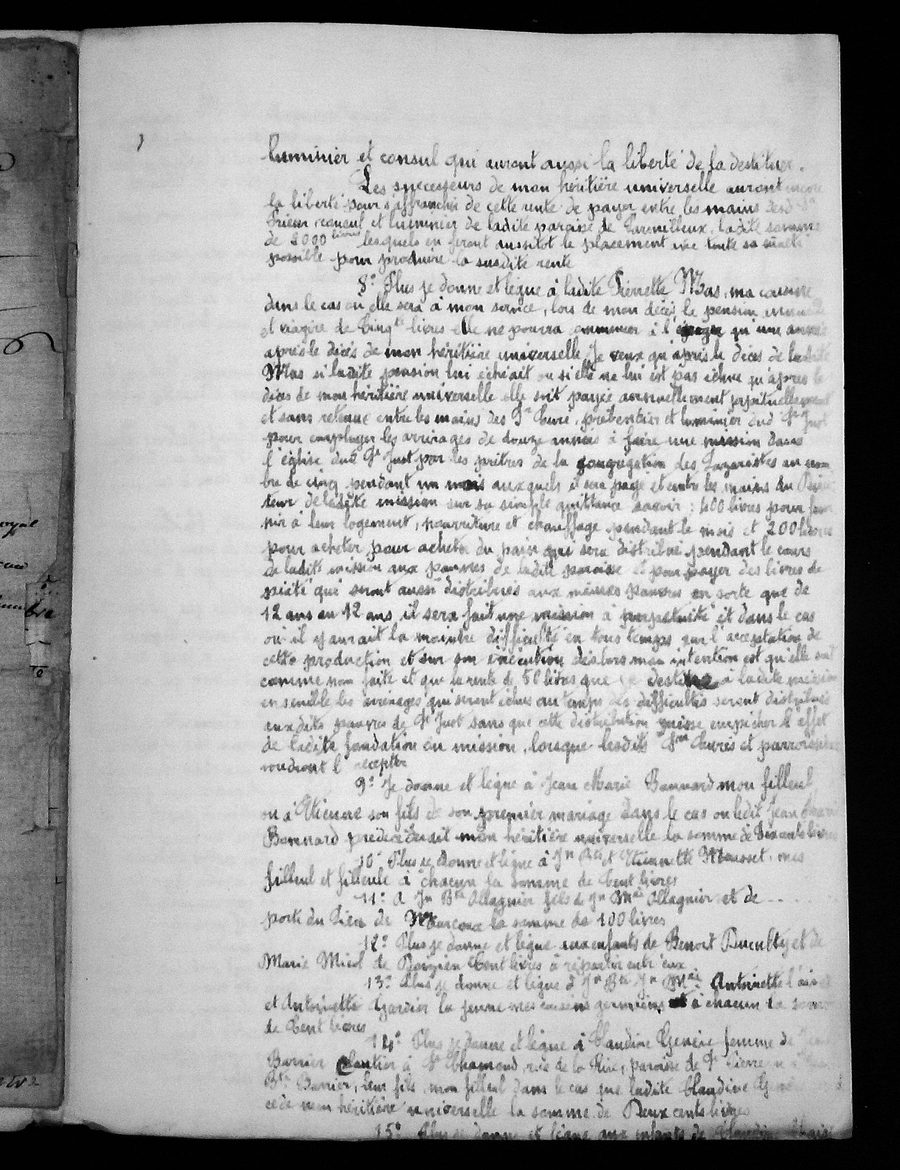 luminier et consul qui auront aussi la liberté de la destituer.
Les successeurs de mon héritière universelle auront encore
la liberté pour s'affranchir de cette rente de payer entre les mains desd
Prieur, consul et luminier de ladite paroisse de ladite somme
de 2000 livres lesquels en feront aussitot le placement avec toute sa
possible pour produire la susdite rente
8° Plus je donne et lègue à ladite Pierrette Mas, ma cousine
dans le cas ou elle sera à mon service, lors de mon décès la pension
et viagère de Cinqte livres elle ne pourra commencer à l' qu'une année
après le décès de mon héritière universelle Je veux qu'après le décès de ladite
Mas si ladite pension lui échéait ou si elle ne lui est pas échue qu'après le
décès de mon héritière universelle elle soit payée annuellement perpétuellement
et sans retenue entre les mains des Srs Curé, prébencier et luminier dud St Just
pour employer les arrérages de douze années à faire une mission dans
l'église dud St Just par les prêtres de la congrégation des Lazaristes au nom
bre de cinq pendant un mois auxquels il sera payé et entre les mains du
teur de ladite mission sur sa simple quittance savoir : 400 livres pour four
nir à leur logement, nourriture et chauffage pendant le mois et 200 livres
pour acheter pour acheter du pain qui sera distribué pendant le cours
de ladite mission aux pauvres de ladite paroisse et pour payer des livres de
piété qui seront aussi distribués aux mêmes pauvres en sorte que de
12 ans en 12 ans, il sera fait une mission à perpétuité et dans le cas
ou il y aurait la moindre difficulté en tous temps sur l'acceptation de
cette production et sur son exécution désalors mon intention est qu'elle soit
comme non faite et que la rente de 50 livres que je destine a ladite mission
ensemble les arrérages qui seront échus au temps des difficultés seront distribués
auxdits pauvres de St Just sans que cette distribution puisse empêcher l'effet
de ladite fondation en mission, lorsque lesdits Srs Curés et parroissiens
voudront l'accepter
9° Je donne et lègue à Jean Marie Bonnard mon filleul
ou à Etienne son fils de son premier mariage Dans le cas ou ledit Jean Marie
Bonnard prédécéderait mon héritière universelle la somme de Deux cents livres
10° Plus je donne et lègue à Jn Bte et Etiennette Mousset, mes
filleul et filleule à chacun la somme de Cent livres
11° A Jn Bte Allagnier fils de Jn Mie Allagnier et de ........
porte du lieu de la somme de 100 livres
12° Plus je donne et lègue aux enfants de Benoit et de
Marie Micol de Cent livres à répartir entr'eux
13° Plus je donne et lègue à Jn Bte Jn Mie Antoinette l'ainée
et Antoinette Gardier la jeune mes cousins germains et à chacun la somme
de Cent livres
14° Plus je donne et lègue à Claudine femme de Jean
Barrier à St Chamond, rue de la paroisse de St Pierre
Bte Barrier, leur fils, mon filleul dans le cas que ladite Claudine
cède mon héritière universelle la somme de Deux cents livres
15° Plus je donne et lègue aux enfants de Claudine